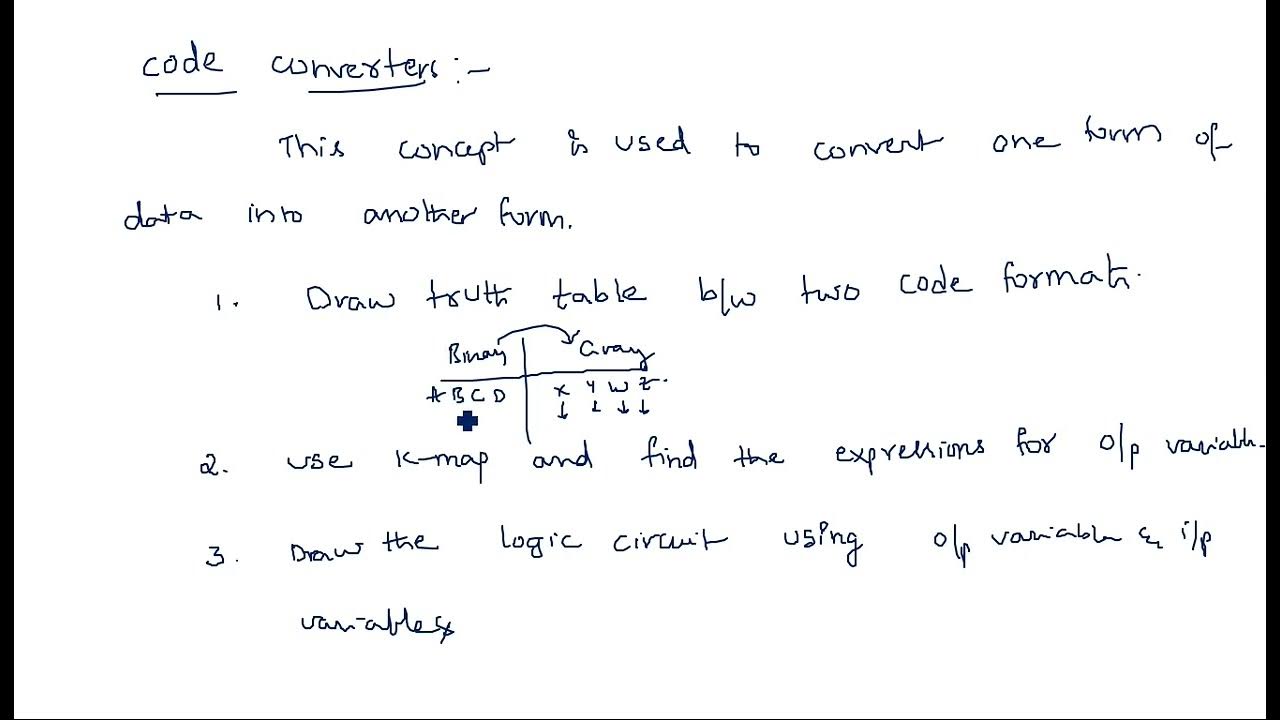 code converters :-
This concept is used to convert one form of
data into another form.
1. Draw truth table b/w two code formats.
Binary Gray
A B C D X Y W Z.
2. use K-map and find the expressions for o/p variable.
3. Draw the logic circuit using o/p variable & i/p
variables